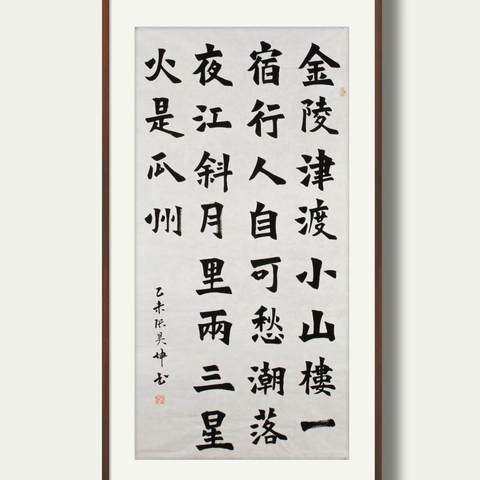 金陵津渡小山樓一
宿行人自可愁潮落
夜江斜月里兩三星
火是瓜州
乙未张昊坤书